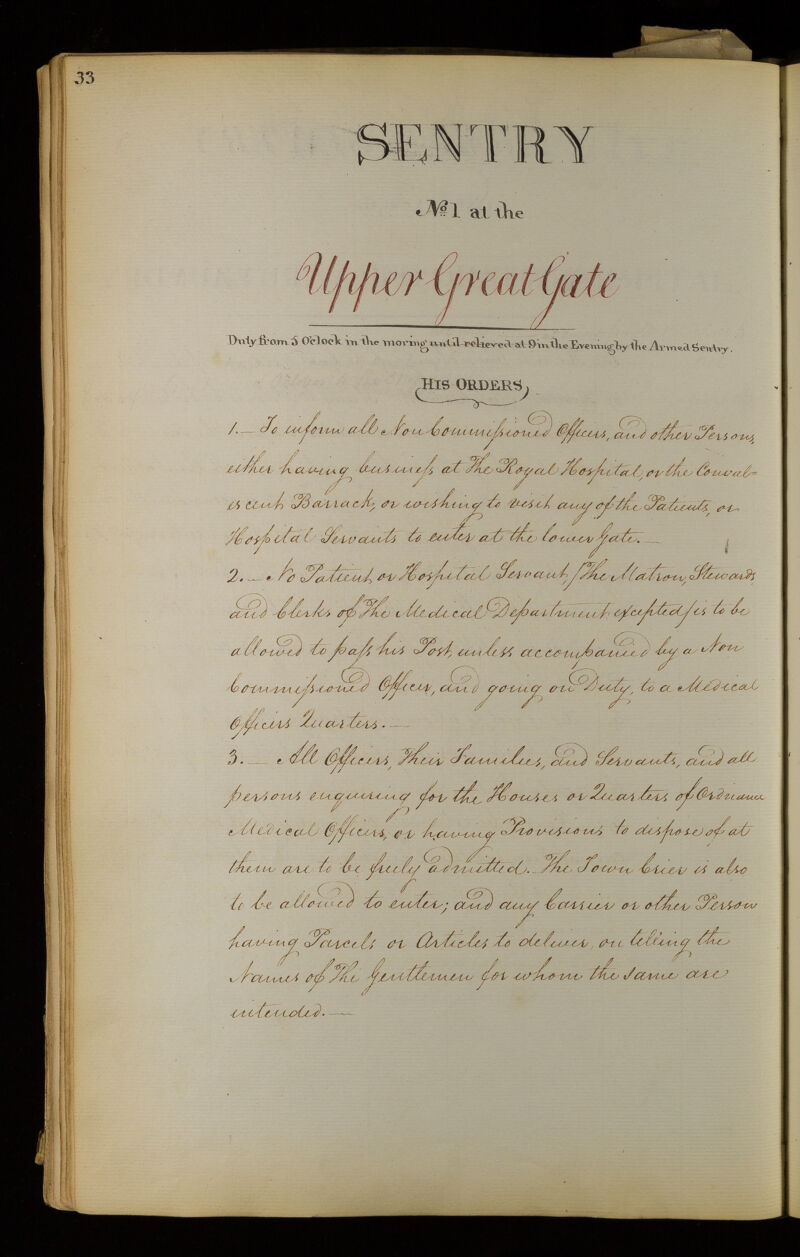 33
SENTRY
No. 1 at the
Upper Great Gate
Duty from 5 O'Clock in the morning until relieved at 9 in the Evening by the Armed Sentry.
HIS ORDERS,
1.— To inform all Non Commissioned Officers, and other Persons,
either having business at The Royal Hospital, or the Conval=
escent Barrack, or wishing to visit any of the Patients, or
Hospital Servants to enter at the lower Gate.—
2.— No Patient, or Hospital Servant, /The Matron, Stewards
and Clerks of The Medical Department excepted/ is to be
allowed to pass his Post, unless accompanied by a Non
Commissioned Officer, and going on Duty, to a Medical
Officers Quarters.—
3.— All Officers, Their Families, and Servants, and all
persons enquiring for the Houses or Quarters of Ordnance
Medical Officers, or having Provisions to dispose of at
them are to be freely admitted. The Town Crier is also
to be allowed to enter; and any Carrier or other Person
having Parcels or Articles to deliver, on telling the
Names of The Gentlemen for whom the same are
intended.—